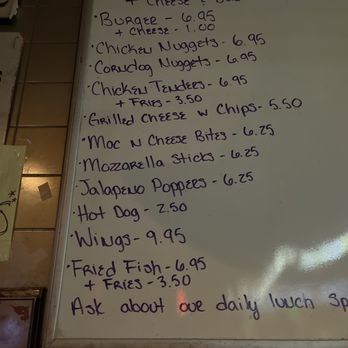 + CHEESE
• BURGER - 6.95
+ CHEESE - 1.00
• CHICKEN NUGGETS - 6.95
• CORNDOG NUGGETS - 6.95
• CHICKEN TENDERS - 6.95
+ FRIES - 3.50
• GRILLED CHEESE W CHIPS - 5.50
• MAC N CHEESE BITES - 6.25
• MOZZARELLA STICKS - 6.25
• JALAPENO POPPERS - 6.25
• HOT DOG - 2.50
• WINGS - 9.95
• FRIED FISH - 6.95
+ FRIES - 3.50
ASK about our daily lunch Sp